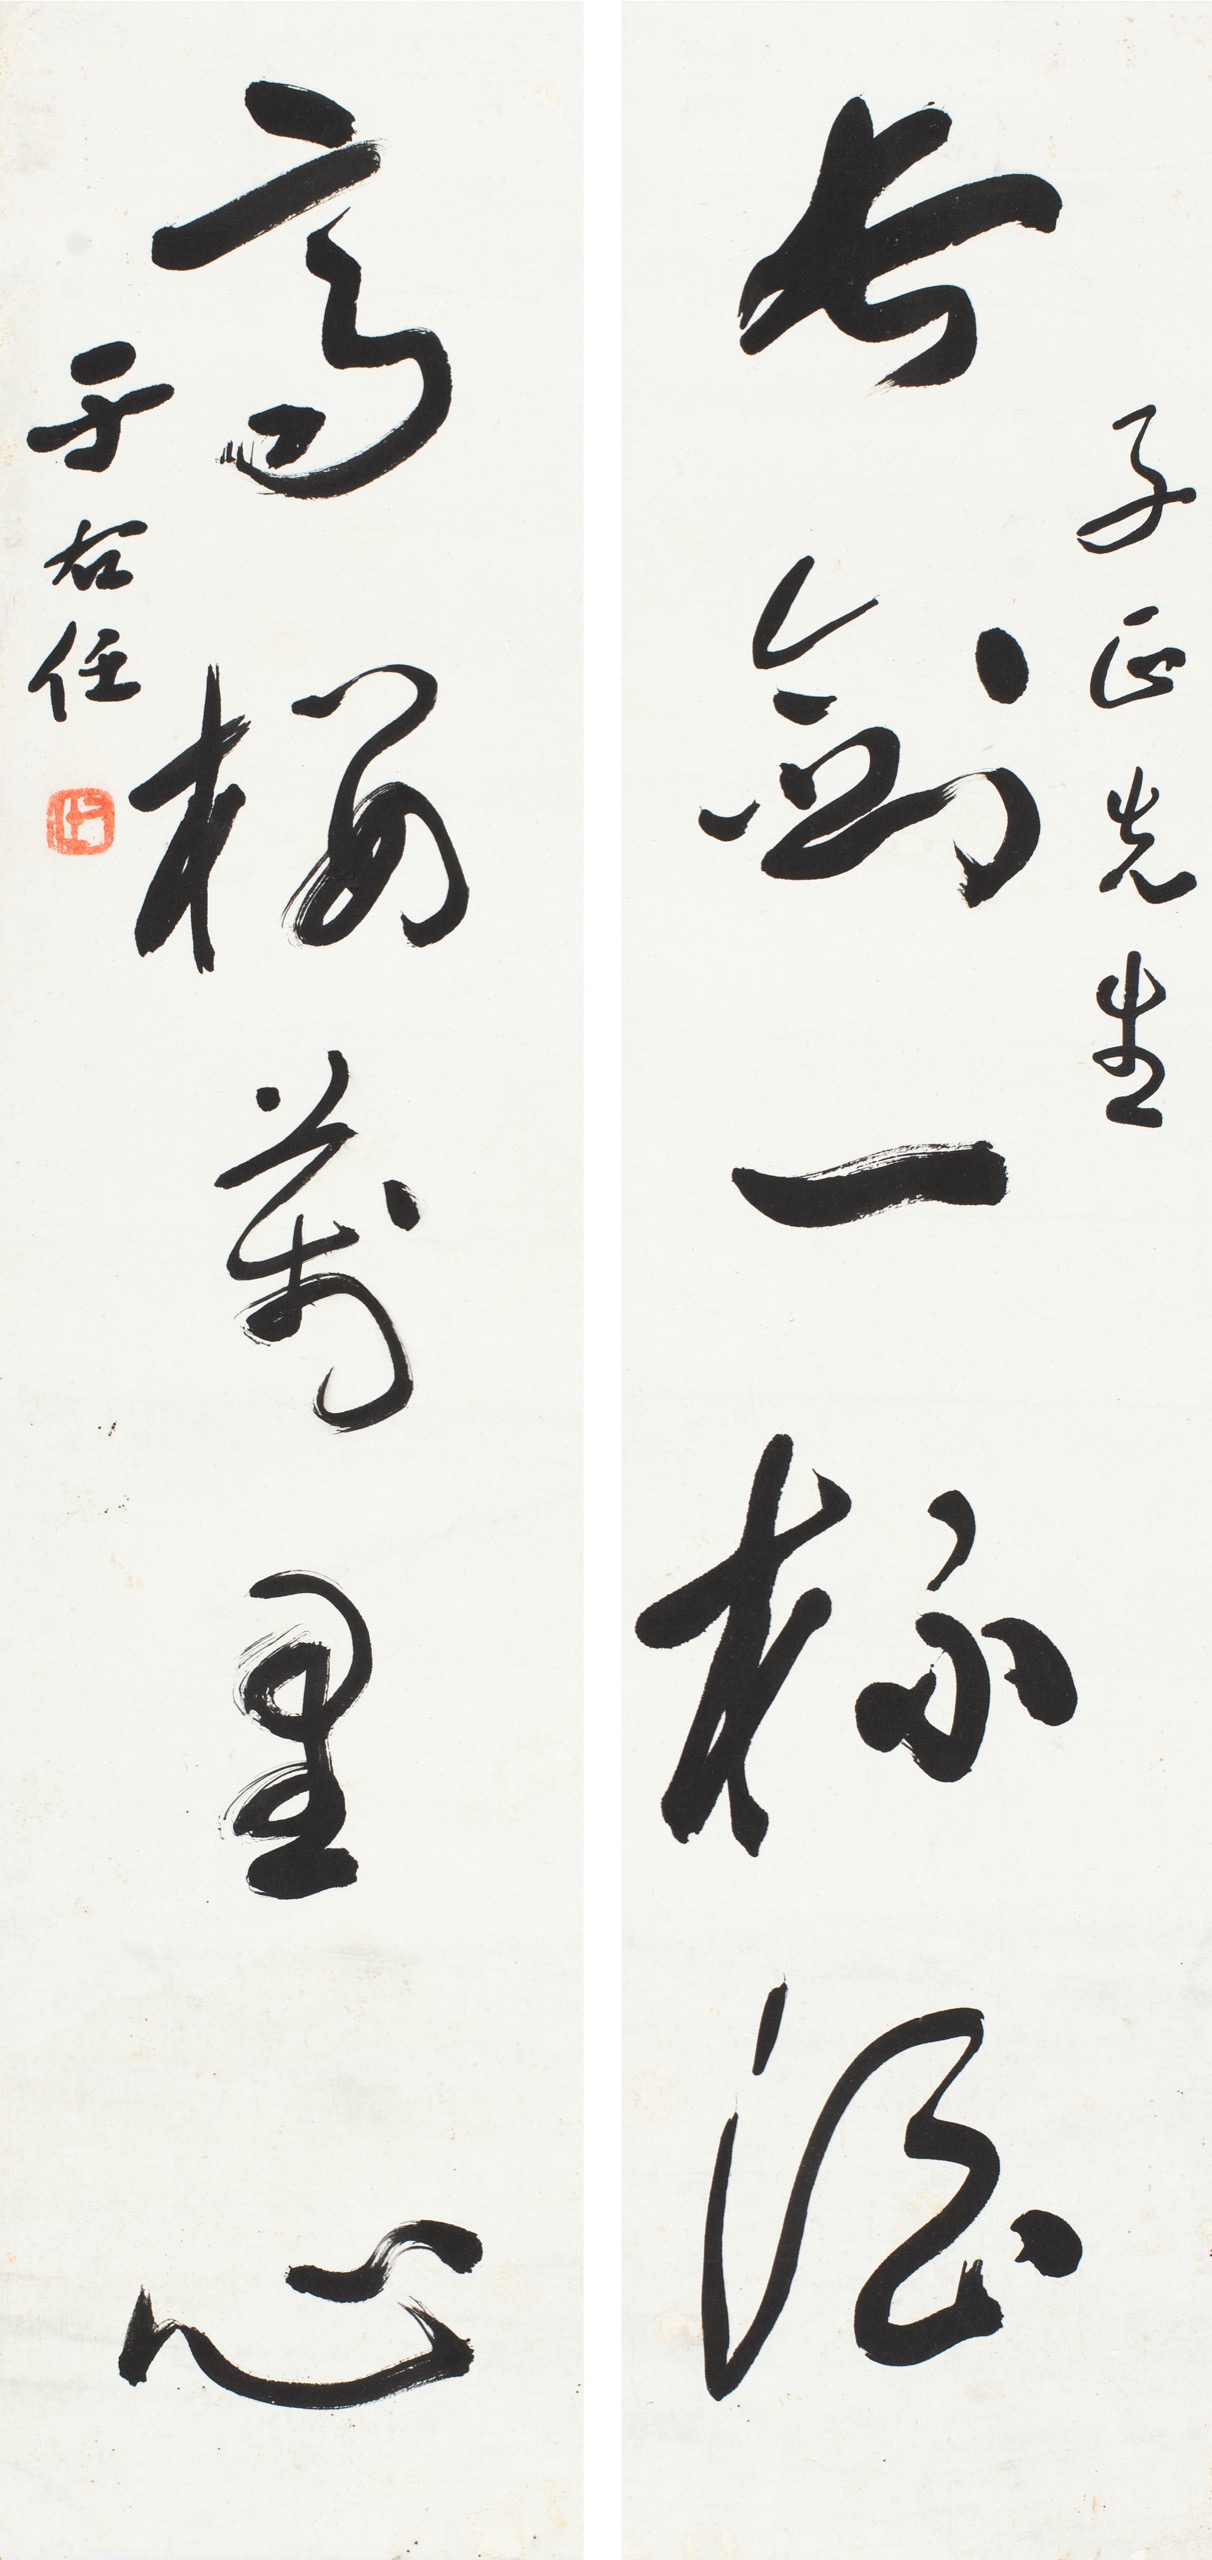 子正先生
長劍一杯酒
高樓萬里心
于右任